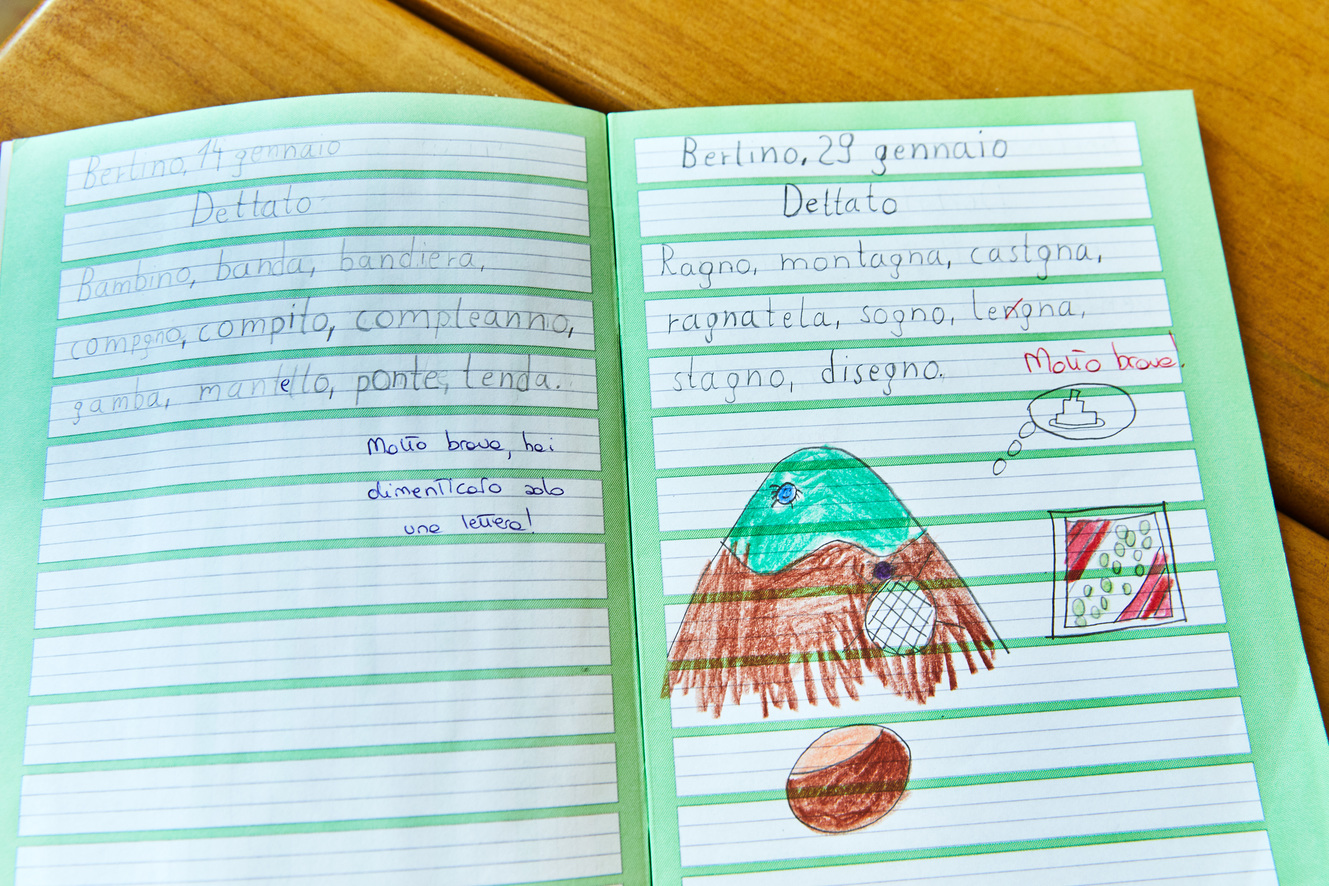 Berlino, 14 gennaio
Dettato
Bambino, banda, bandiera,
compgno, compito, compleanno,
gamba, mantello, ponte, tenda.
Molto brava, hai
dimenticato solo
una lettera!
Berlino, 29 gennaio
Dettato
Ragno, montagna, castgna,
ragnatela, sogno, legna,
stagno, disegno.
Molto brava!